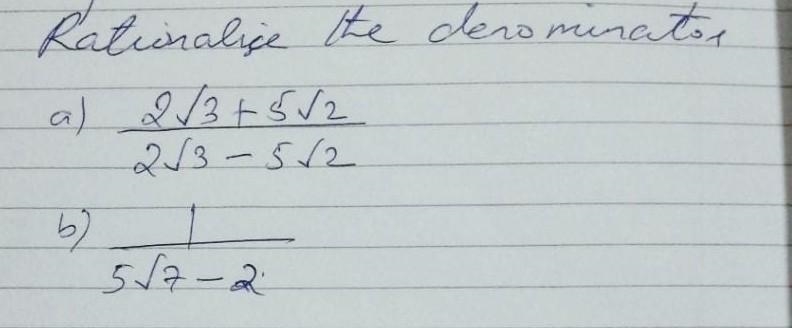 Rationalise the denominator
a) 2√3 + 5√2
2√3 - 5√2
b) 1
5√7 - 2